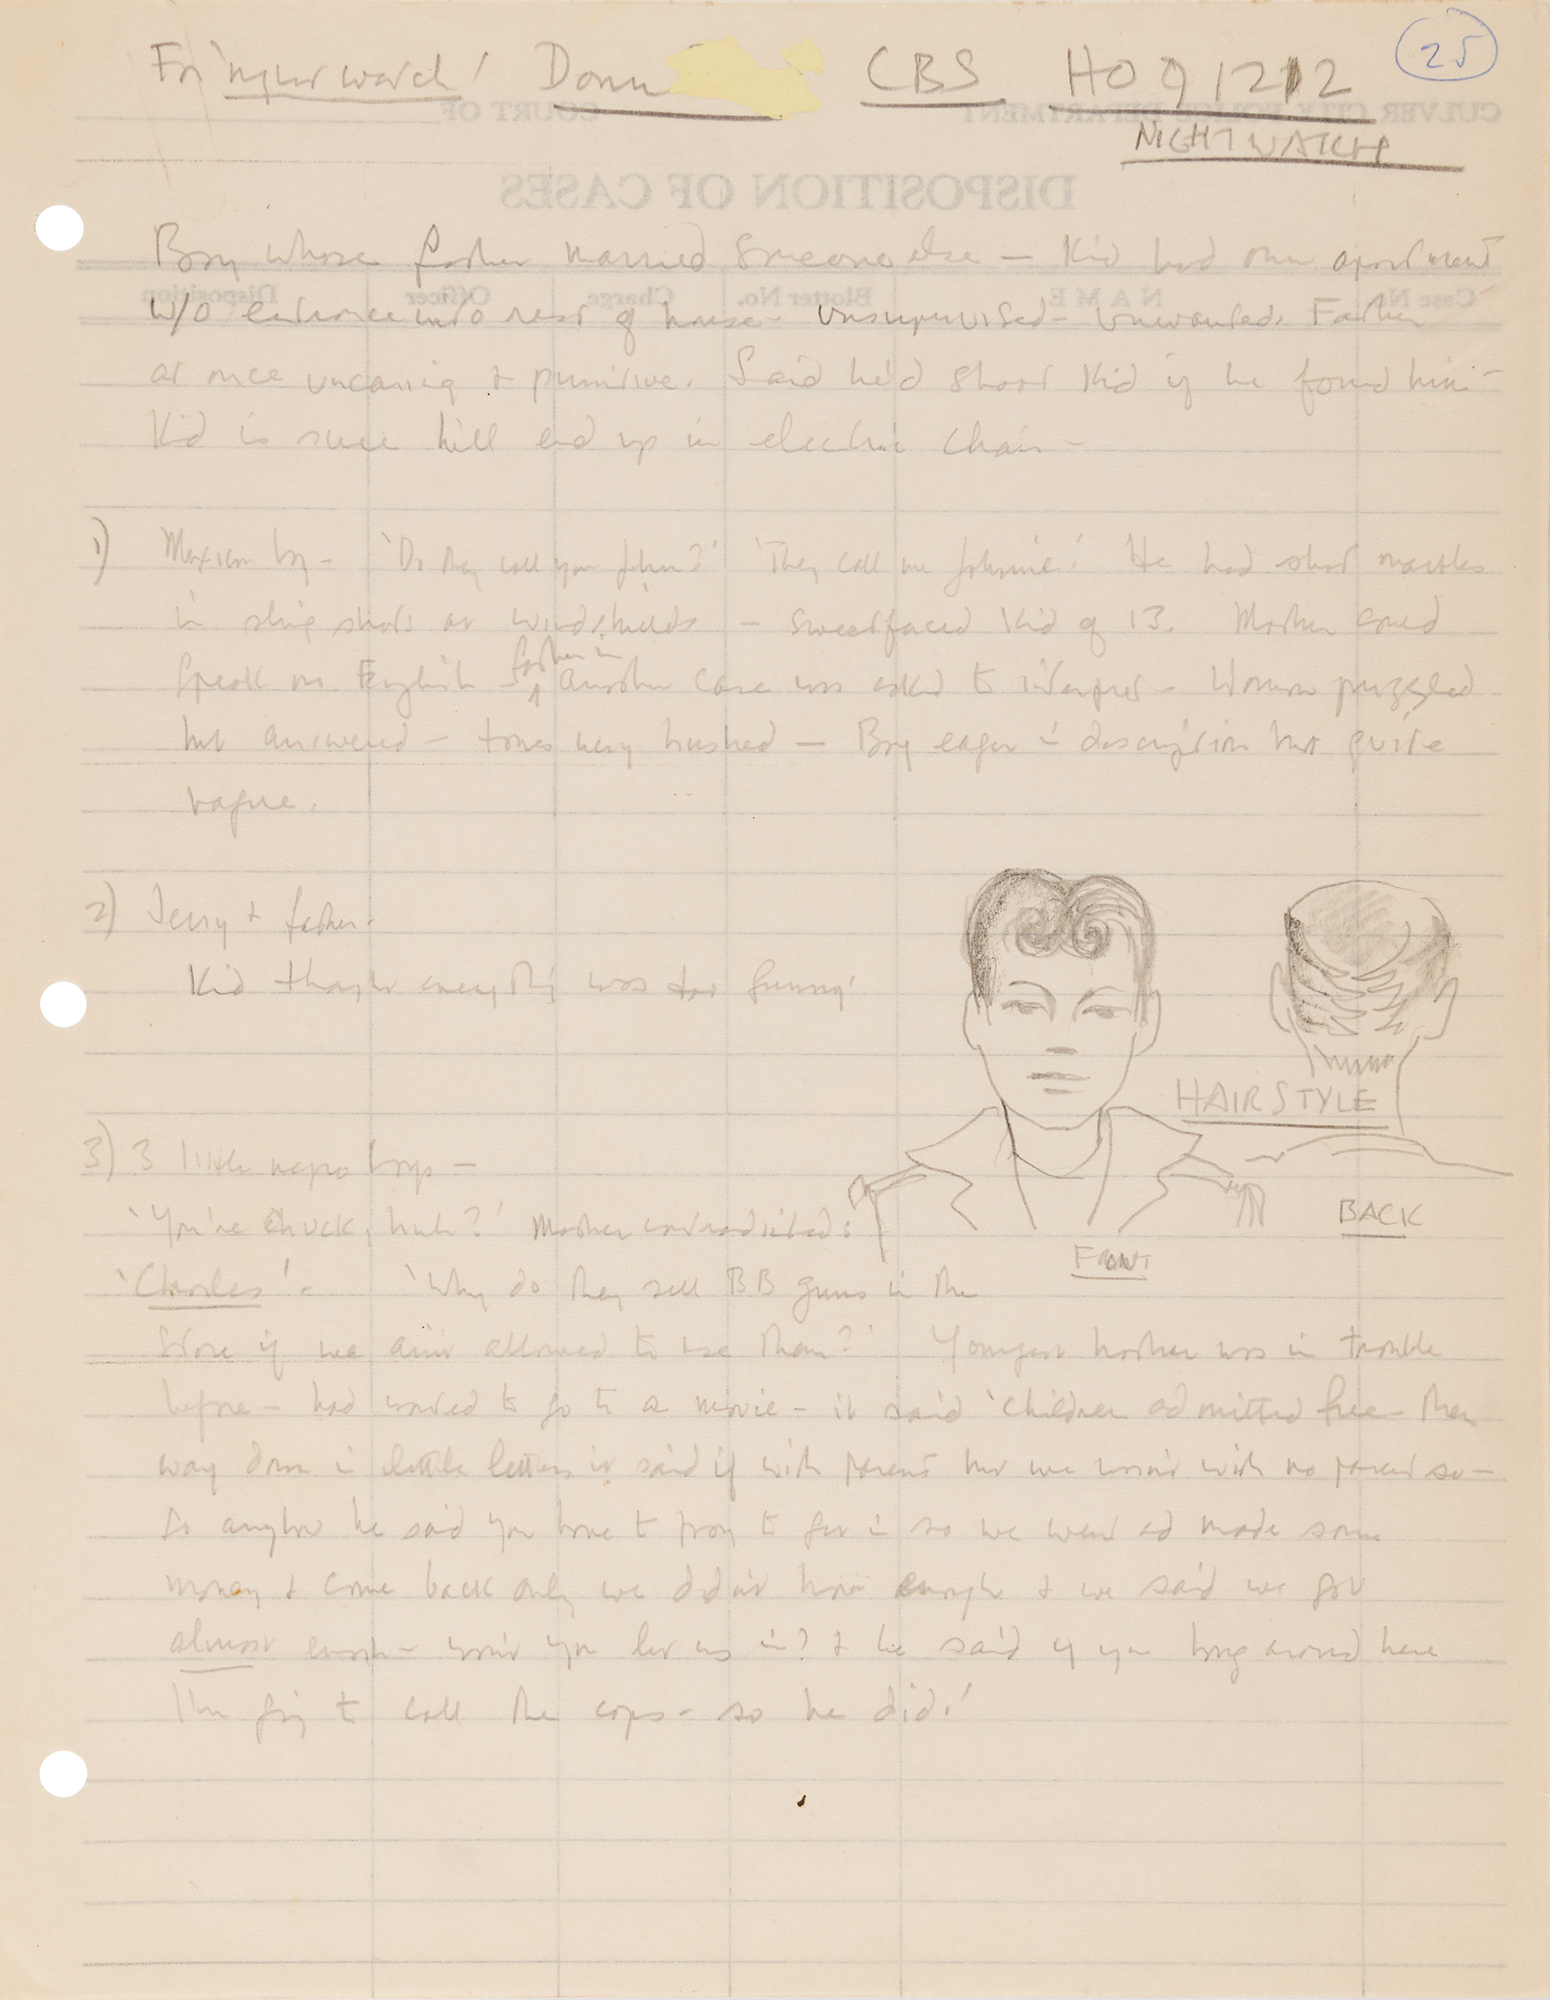 Fri 'nightwatch' Donn CBS HO 9 1212 25
NIGHTWATCH
CULVER CITY POLICE DEPARTMENT COURT OF
DISPOSITION OF CASES
Case No. NAME Blotter No. Charge Officer Disposition
Boy whose father married someone else — Kid had own apartment
w/o entrance into rest of house - unsupervised - unwanted. Father
at once uncaring & punitive. Said he'd shoot Kid if he found him -
Kid is sure he'll end up in electric chair -
1) Mexican boy - 'Do they call you John?' 'They call me Johnnie.' He had shot marbles
in sling shots at windshields - sweetfaced Kid of 13. Mother could
speak no English - father in another case was asked to interpret - Woman puzzled
but answered - tones very hushed — Boy eager in description but quite
vague.
2) Jerry & father.
Kid thought everything was too funny
HAIRSTYLE
FRONT
BACK
3) 3 little negro boys —
'You're Chuck, huh?' Mother contradicted:
'Charles' - 'Why do they sell BB guns in the
store if we ain't allowed to use them?' Youngest brother was in trouble
before - had wanted to go to a movie - it said 'children admitted free - then
way down in little letters it said if with parent but we wasn't with no parent so -
so anyhow he said you have to pay to get in so we went and made some
money & come back only we didn't have enough & we said we got
almost enough - won't you let us in? & he said if you hang around here
I'm going to call the cops - so he did.'